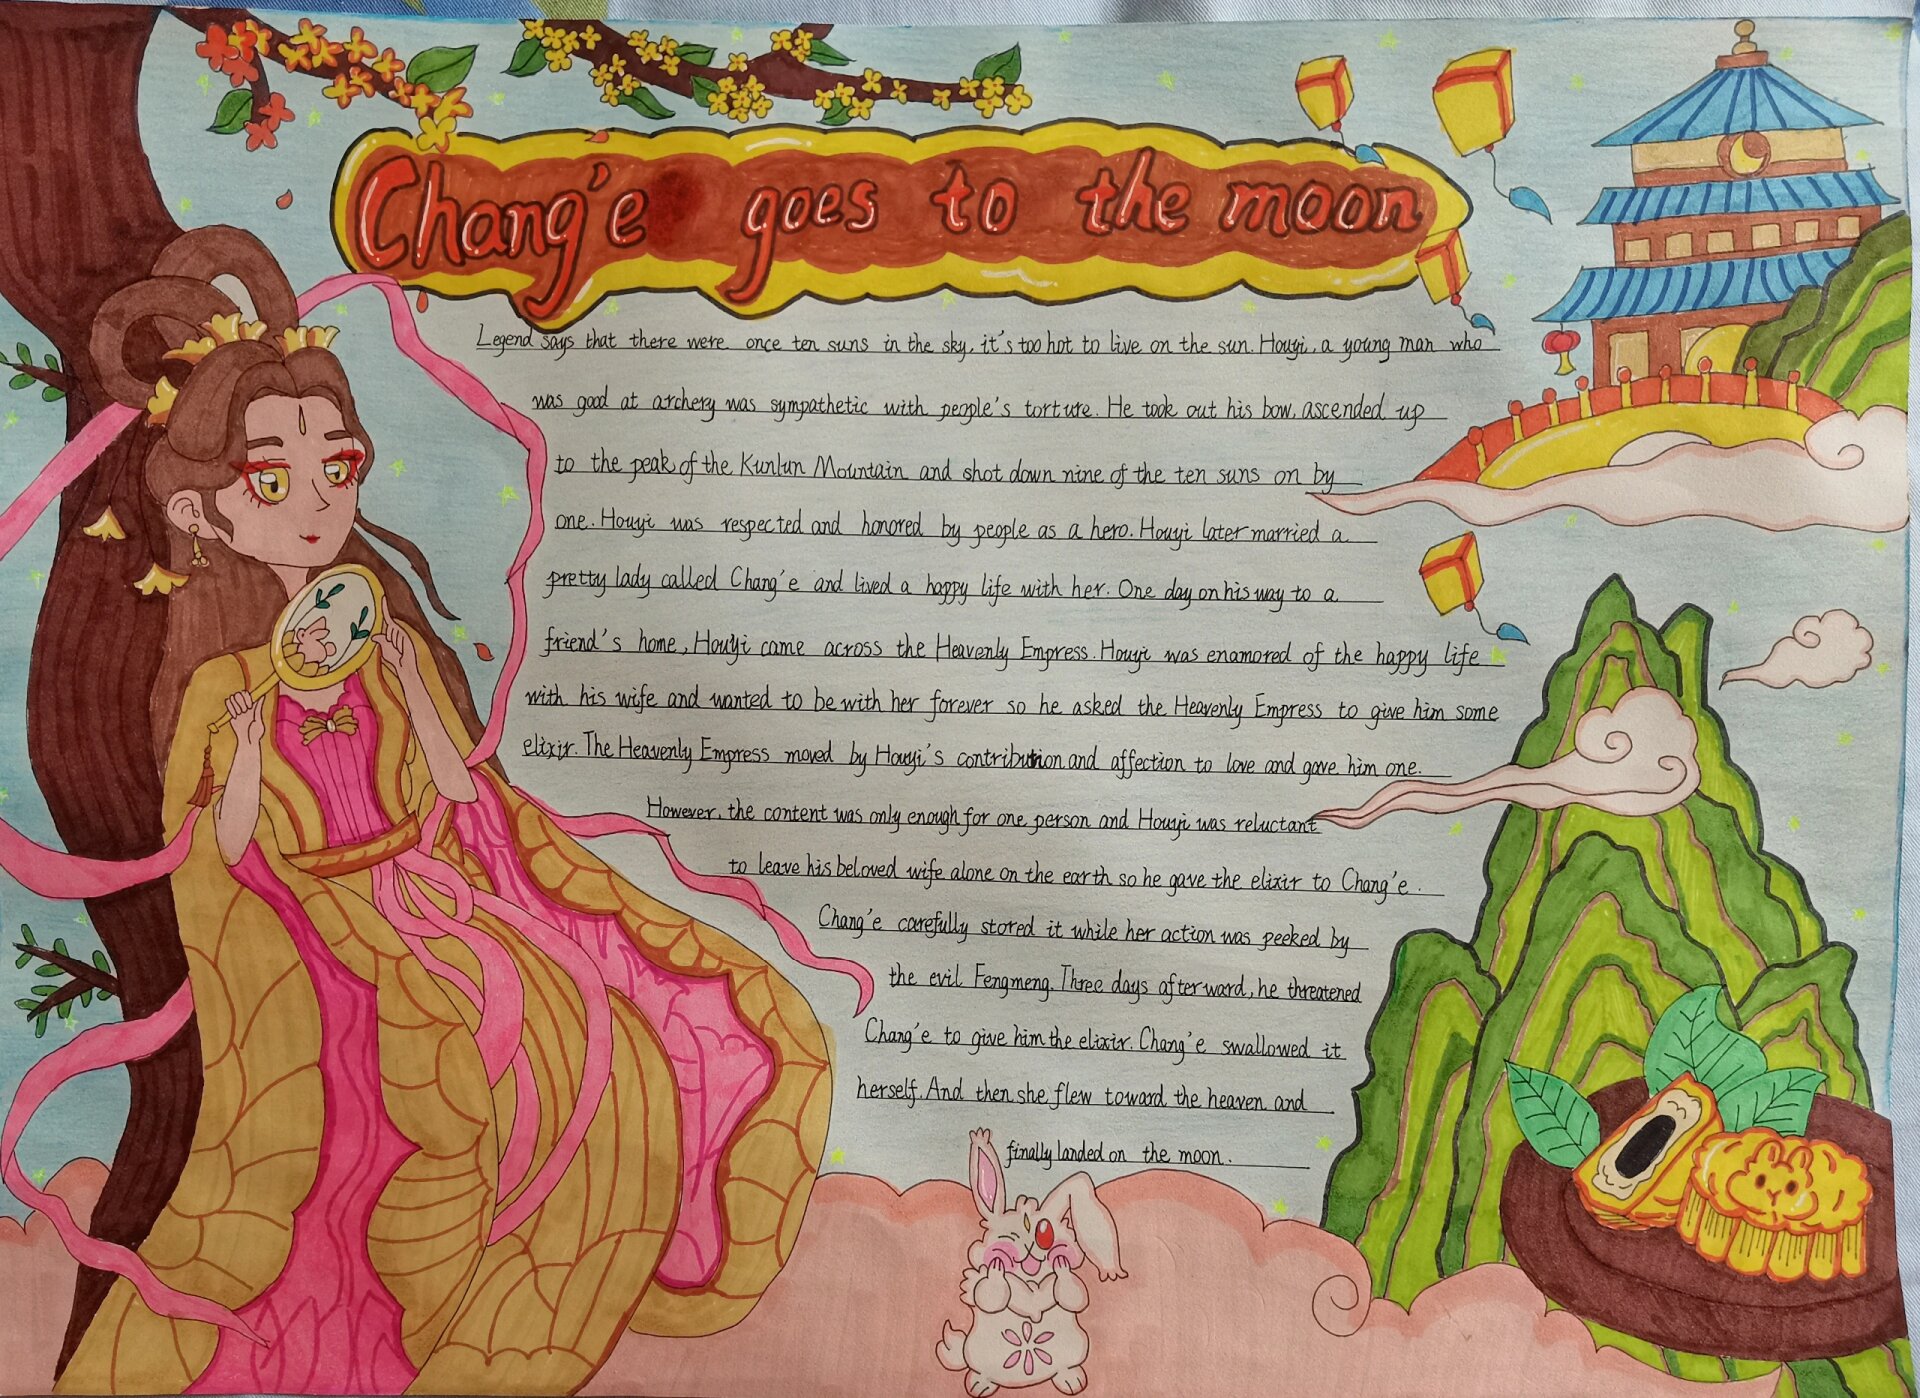 Chang'e goes to the moon
Legend says that there were once ten suns in the sky, it's too hot to live on the sun. Houyi, a young man who
was good at archery was sympathetic with people's torture. He took out his bow, ascended up
to the peak of the Kunlun Mountain and shot down nine of the ten suns on by
one. Houyi was respected and honored by people as a hero. Houyi later married a
pretty lady called Chang'e and lived a happy life with her. One day on his way to a
friend's home, Houyi came across the Heavenly Empress. Houyi was enamored of the happy life
with his wife and wanted to be with her forever so he asked the Heavenly Empress to give him some
elixir. The Heavenly Empress moved by Houyi's contribution and affection to love and gave him one.
However, the content was only enough for one person and Houyi was reluctant
to leave his beloved wife alone on the earth so he gave the elixir to Chang'e.
Chang'e carefully stored it while her action was peeked by
the evil Fengmeng. Three days afterward, he threatened
Chang'e to give him the elixir. Chang'e swallowed it
herself. And then she flew toward the heaven and
finally landed on the moon.